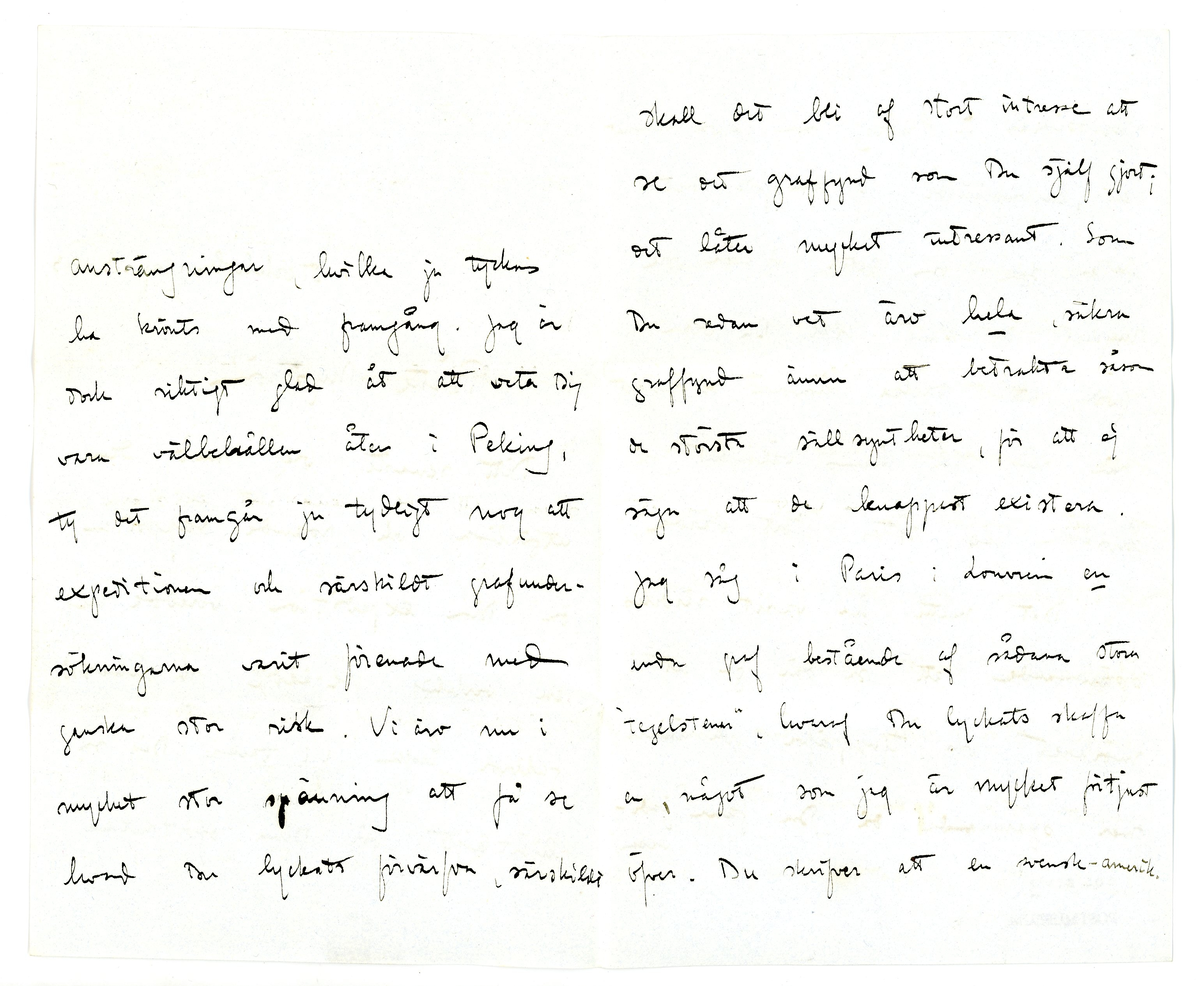 ansträngningar, hvilka ju tyckas
ha krönts med framgång. Jag är
dock riktigt glad åt att veta Dig
vara välbehållen åter i Peking,
ty det framgår ju tydligt nog att
expeditionen och särskildt grafunder-
sökningarna varit förenade med
ganska stor risk. Vi äro nu i
mycket stor spänning att få se
hvad Du lyckats förvärfva, särskildt
skall det bli af stort intresse att
se det graffynd som Du själf gjort;
det låter mycket intressant. Som
Du redan vet äro hela, säkra
graffynd ännu att betrakta såsom
de största sällsyntheter, för att ej
säga att de knappast existera.
Jag såg i Paris i Louvren en
enda graf bestående af sådana stora
"tegelstenar", hvaraf Du lyckats skaffa
en, något som jag är mycket förtjust
öfver. Du skrifver att en svensk-amerik.